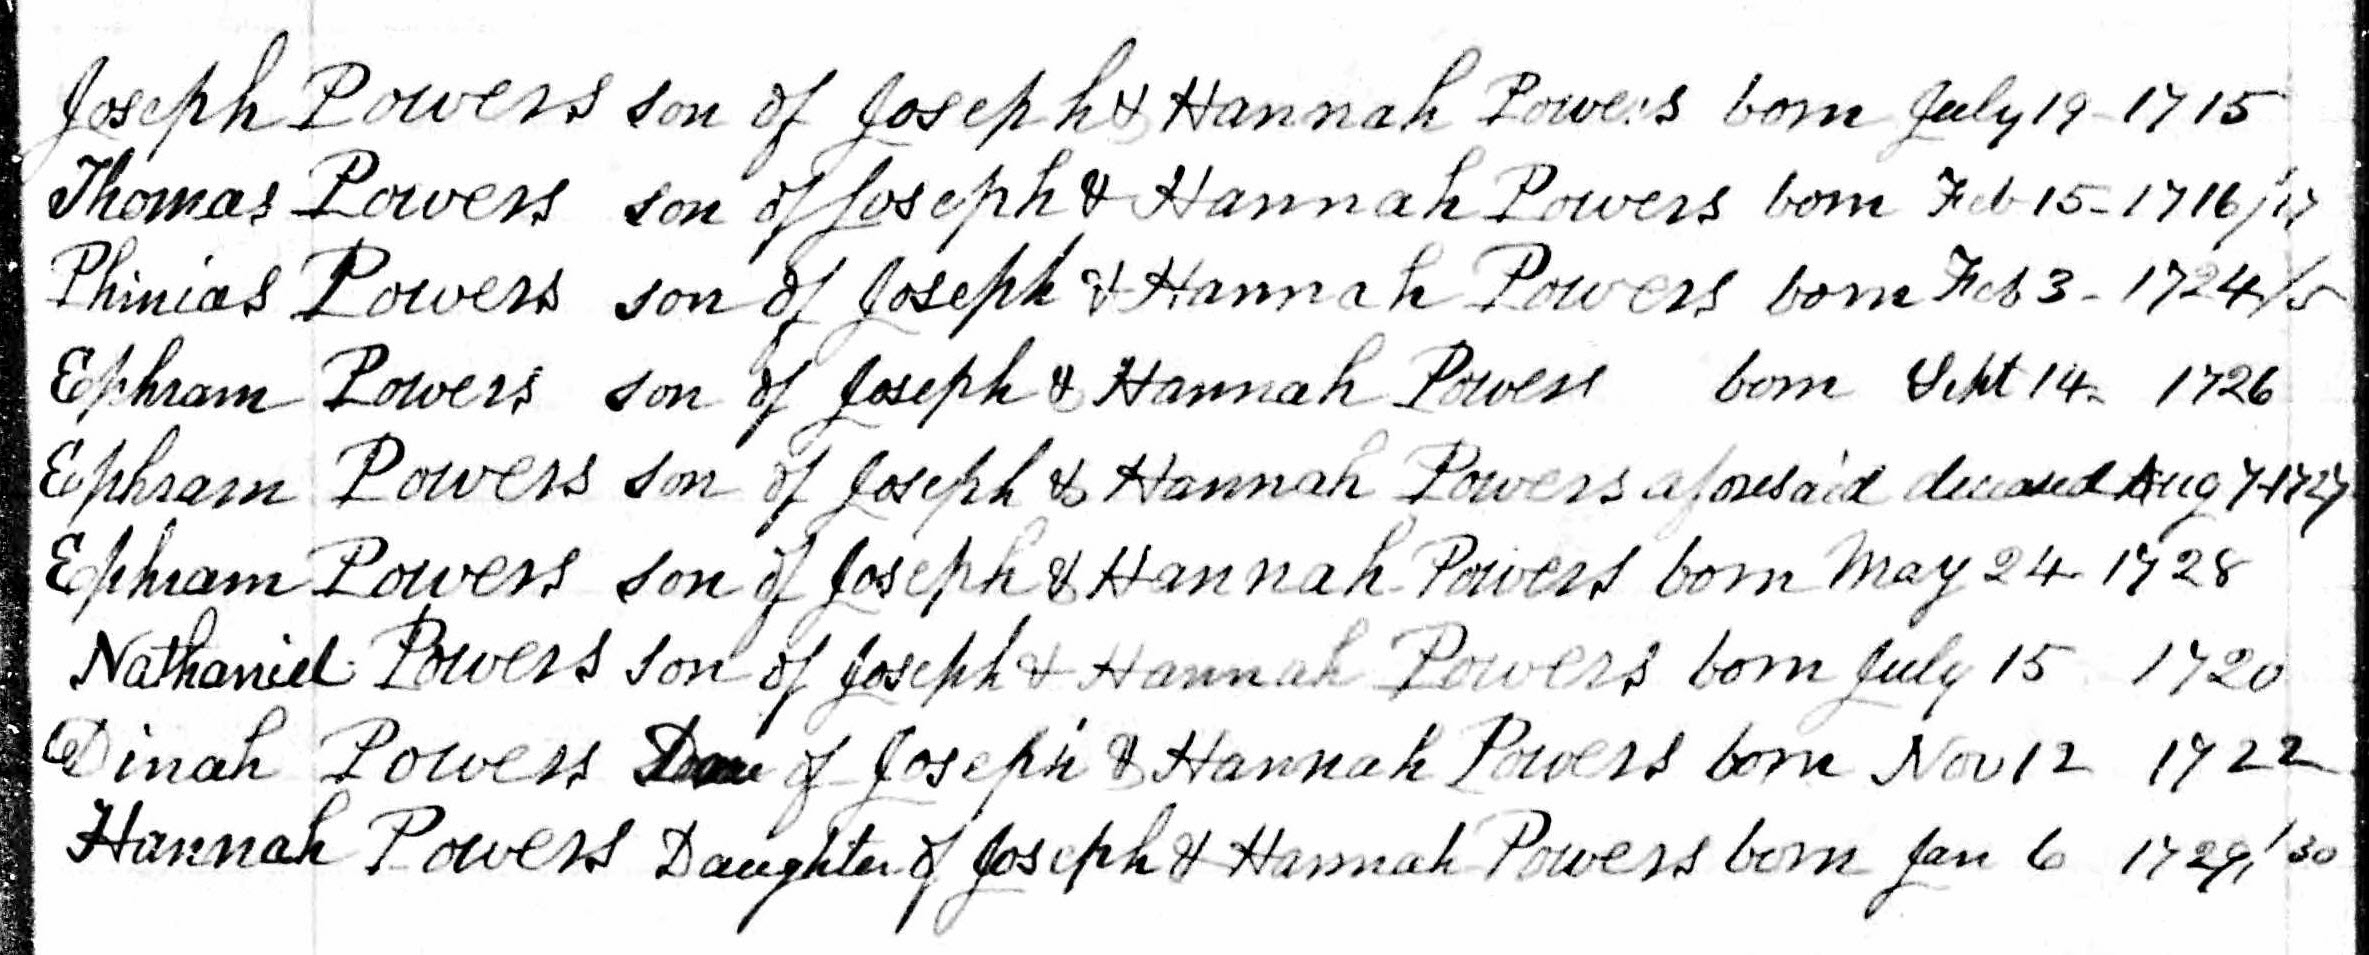 Joseph Powers son of Joseph & Hannah Powers born July 19 - 1715
Thomas Powers son of Joseph & Hannah Powers born Feb 15 - 1716/17
Phinias Powers son of Joseph & Hannah Powers born Feb 3 - 1724/5
Ephram Powers son of Joseph & Hannah Powers born Sept 14 - 1726
Ephram Powers son of Joseph & Hannah Powers aforesaid deceased Aug 7 - 1727
Ephram Powers son of Joseph & Hannah Powers born May 24 - 1728
Nathaniel Powers son of Joseph & Hannah Powers born July 15 1720
Dinah Powers Dau of Joseph & Hannah Powers born Nov 12 1722
Hannah Powers Daughter of Joseph & Hannah Powers born Jan 6 1729/30